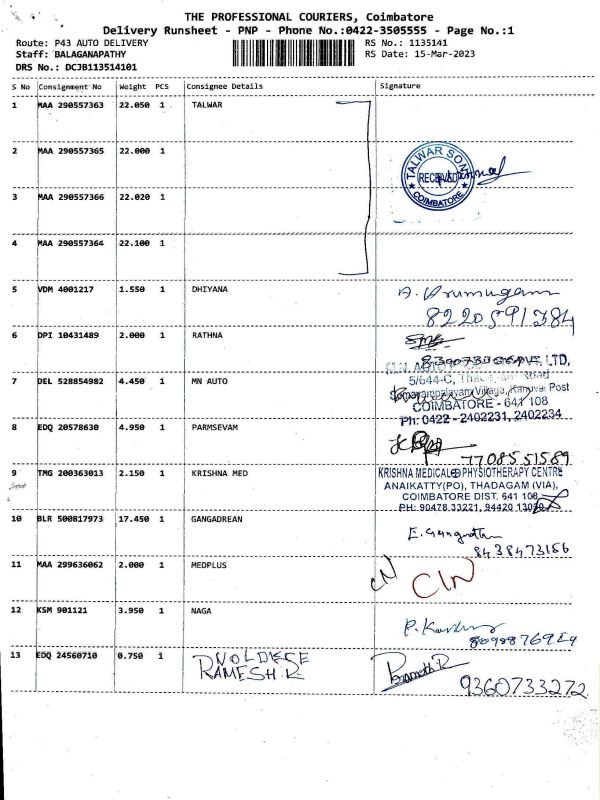 THE PROFESSIONAL COURIERS, Coimbatore
Delivery Runsheet - PNP - Phone No.:0422-3505555 - Page No.:1
Route: P43 AUTO DELIVERY RS No.: 1135141
Staff: BALAGANAPATHY RS Date: 15-Mar-2023
DRS No.: DCJB113514101
S No Consignment No Weight PCS Consignee Details Signature
1 MAA 290557363 22.050 1 TALWAR
2 MAA 290557365 22.000 1
TALWAR SON
RECEIVED
COIMBATORE
3 MAA 290557366 22.020 1
4 MAA 290557364 22.100 1
5 VDM 4001217 1.550 1 DHIYANA
A. Arumugam
8220591384
6 DPI 10431489 2.000 1 RATHNA
PVT. LTD,
7 DEL 528854982 4.450 1 MN AUTO
5/644-C, Road
Somayampalayam Village, Kanuvai Post
COIMBATORE - 641 108
Ph: 0422 - 2402231, 2402234
8 EDQ 20578630 4.950 1 PARMSEVAM
7708551589
9 TMG 200363013 2.150 1 KRISHNA MED
KRISHNA MEDICAL & PHYSIOTHERAPY CENTRE
ANAIKATTY(PO), THADAGAM (VIA),
COIMBATORE DIST. 641 108
PH: 90478 33221, 94420
10 BLR 500817973 17.450 1 GANGADREAN
8438473156
11 MAA 299636062 2.000 1 MEDPLUS
12 KSM 901121 3.950 1 NAGA
13 EDQ 24560710 0.750 1
RAMESH R
9360733272